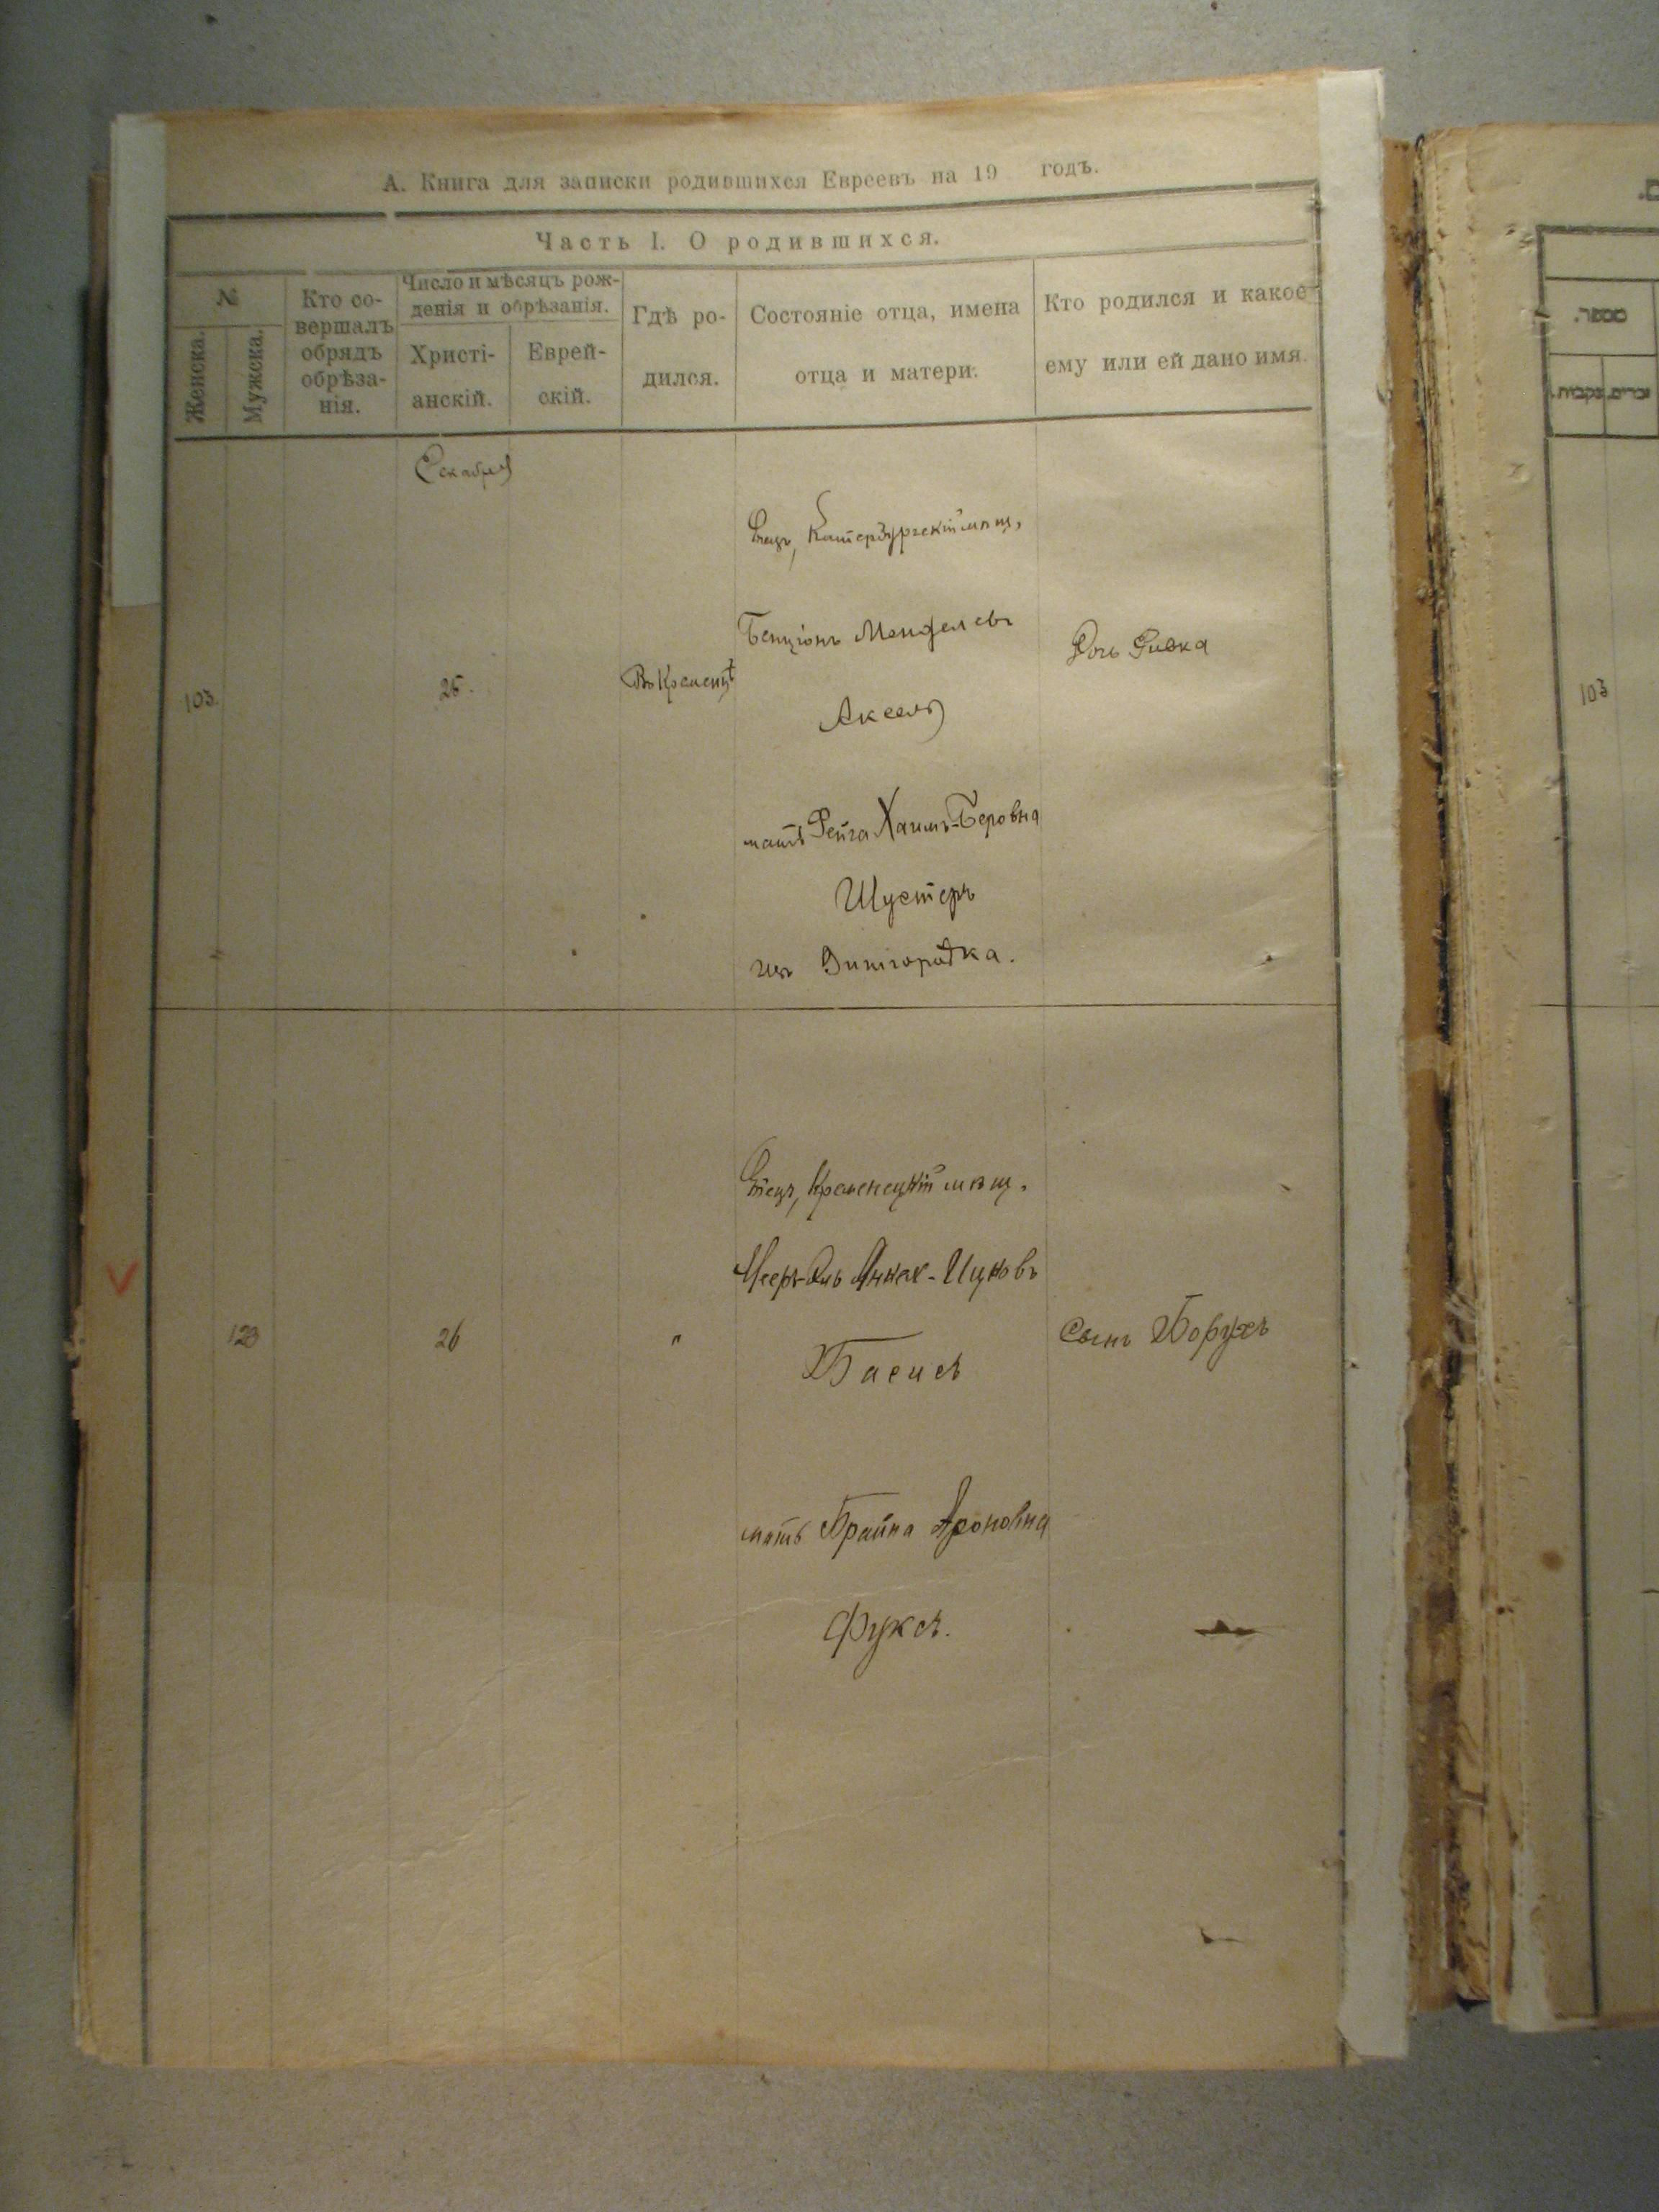 А. Книга для записки родившихся Евреевъ на 19 годъ.
Часть I. О родившихся.
№
Женска.
Мужска.
Кто со-
вершалъ
обрядъ
обрѣза-
нія.
Число и мѣсяцъ рож-
денія и обрѣзанія.
Христі-
анскій.
Еврей-
скій.
Гдѣ ро-
дился.
Состояніе отца, имена
отца и матери.
Кто родился и какое
ему или ей дано имя.
Декабря
103.
25.
Въ Кременцѣ
Отецъ, Катербургскій мѣщ.
Бенціонъ Менделевъ
Аксель
мать Фейга Хаимъ-Беровна
Шустеръ
изъ Вишгородка.
Дочь Ривка
123
26
"
Отецъ, Кременецкій мѣщ.
Ицковъ
Басисъ
мать Брайна Ароновна
Фуксъ.
Сынъ Борухъ
מספר.
נקבות.
זכרים.
103